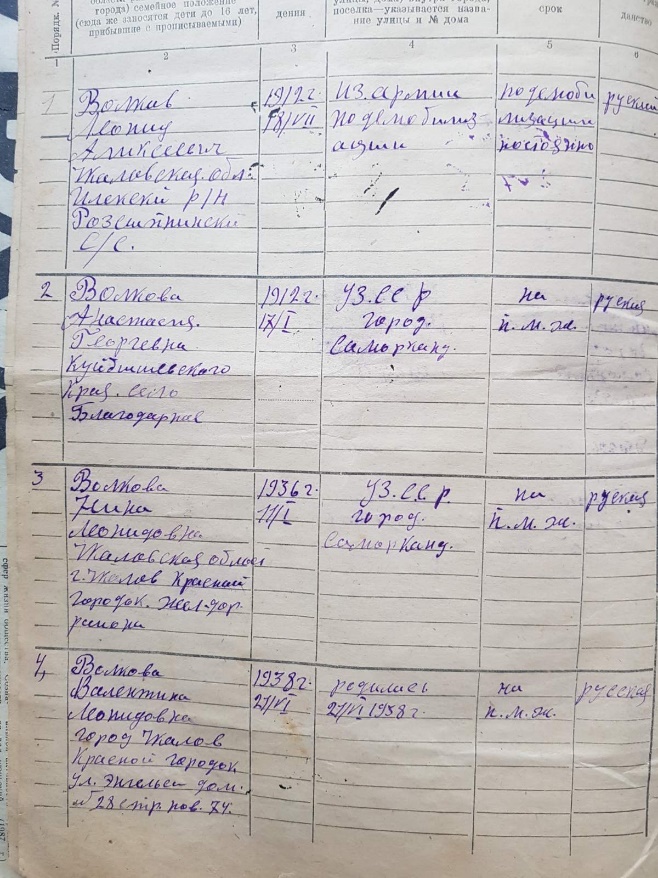 города) семейное положение
(сюда же заносятся дети до 16 лет,
прибывшие с прописываемыми)
дения
поселка—указывается назва-
ние улицы и № дома
срок
данство
— Порядк. №
2
3
4
5
6
1
Волков
Леонид
Аликсеевич
Чкаловская обл.
Илекский р/н
с/с.
1912 г.
18/VII
из армии
по демобилиз
ации
по демоби
лизации
постояно
руский
2
Волкова
Анастасия
Георгевна
Куйбышевского
Края. село
Благодарное
1912 г.
17/I
УЗ.ССР
город.
Самарканд.
на
п.м.ж.
руская
3
Волкова
Нина
Леонидовна
Чкаловская област
г. Чкалов Красный
городок. Жел-дор
района
1936 г.
11/I
УЗ.ССР
город.
Самарканд.
на
п.м.ж.
руская
4
Волкова
Валентина
Леонидовна
город Чкалов
Красной городок
ул. Энгельса дом.
№ 28 стр. нов. 74.
1938 г.
27/VI
родилась
27/VI 1938 г.
на
п.м.ж.
русская